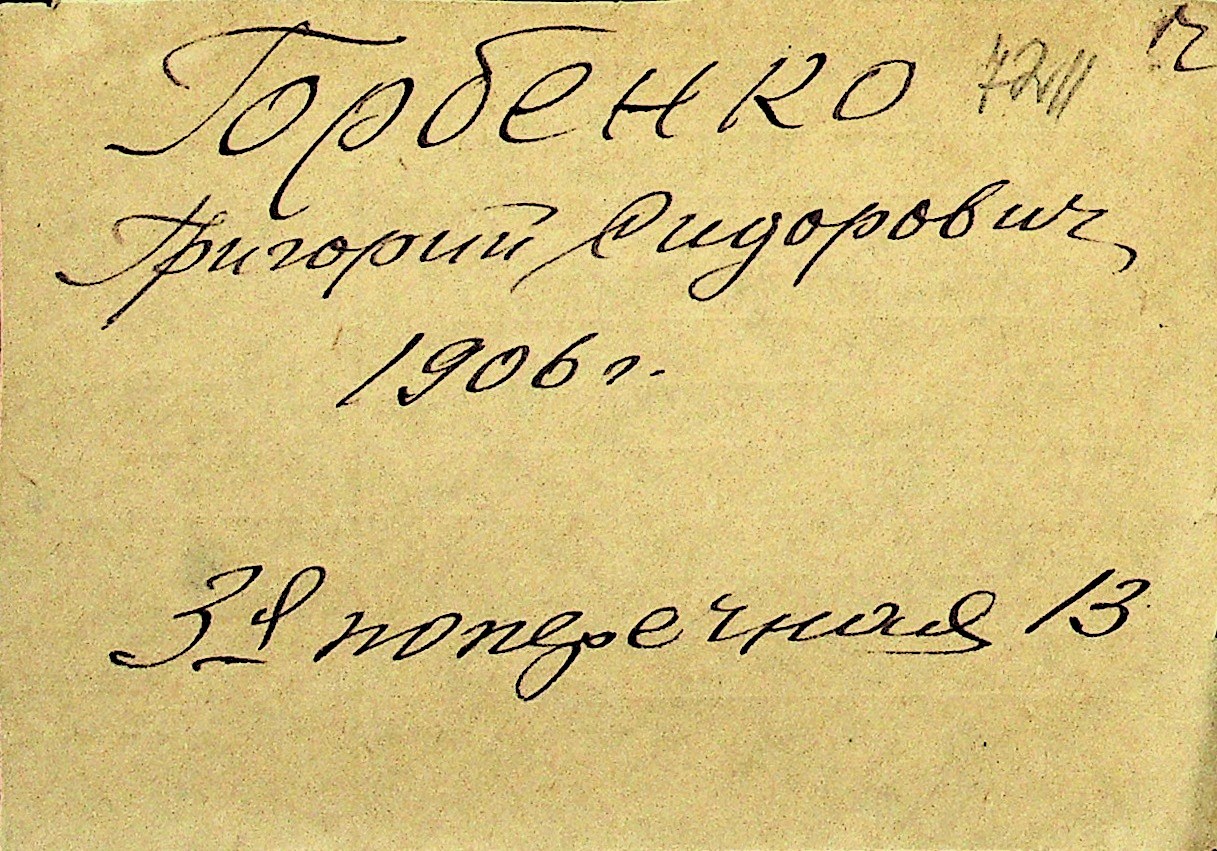 Горбенко
Григорий Сидорович
1906 г.
3я поперечная 13